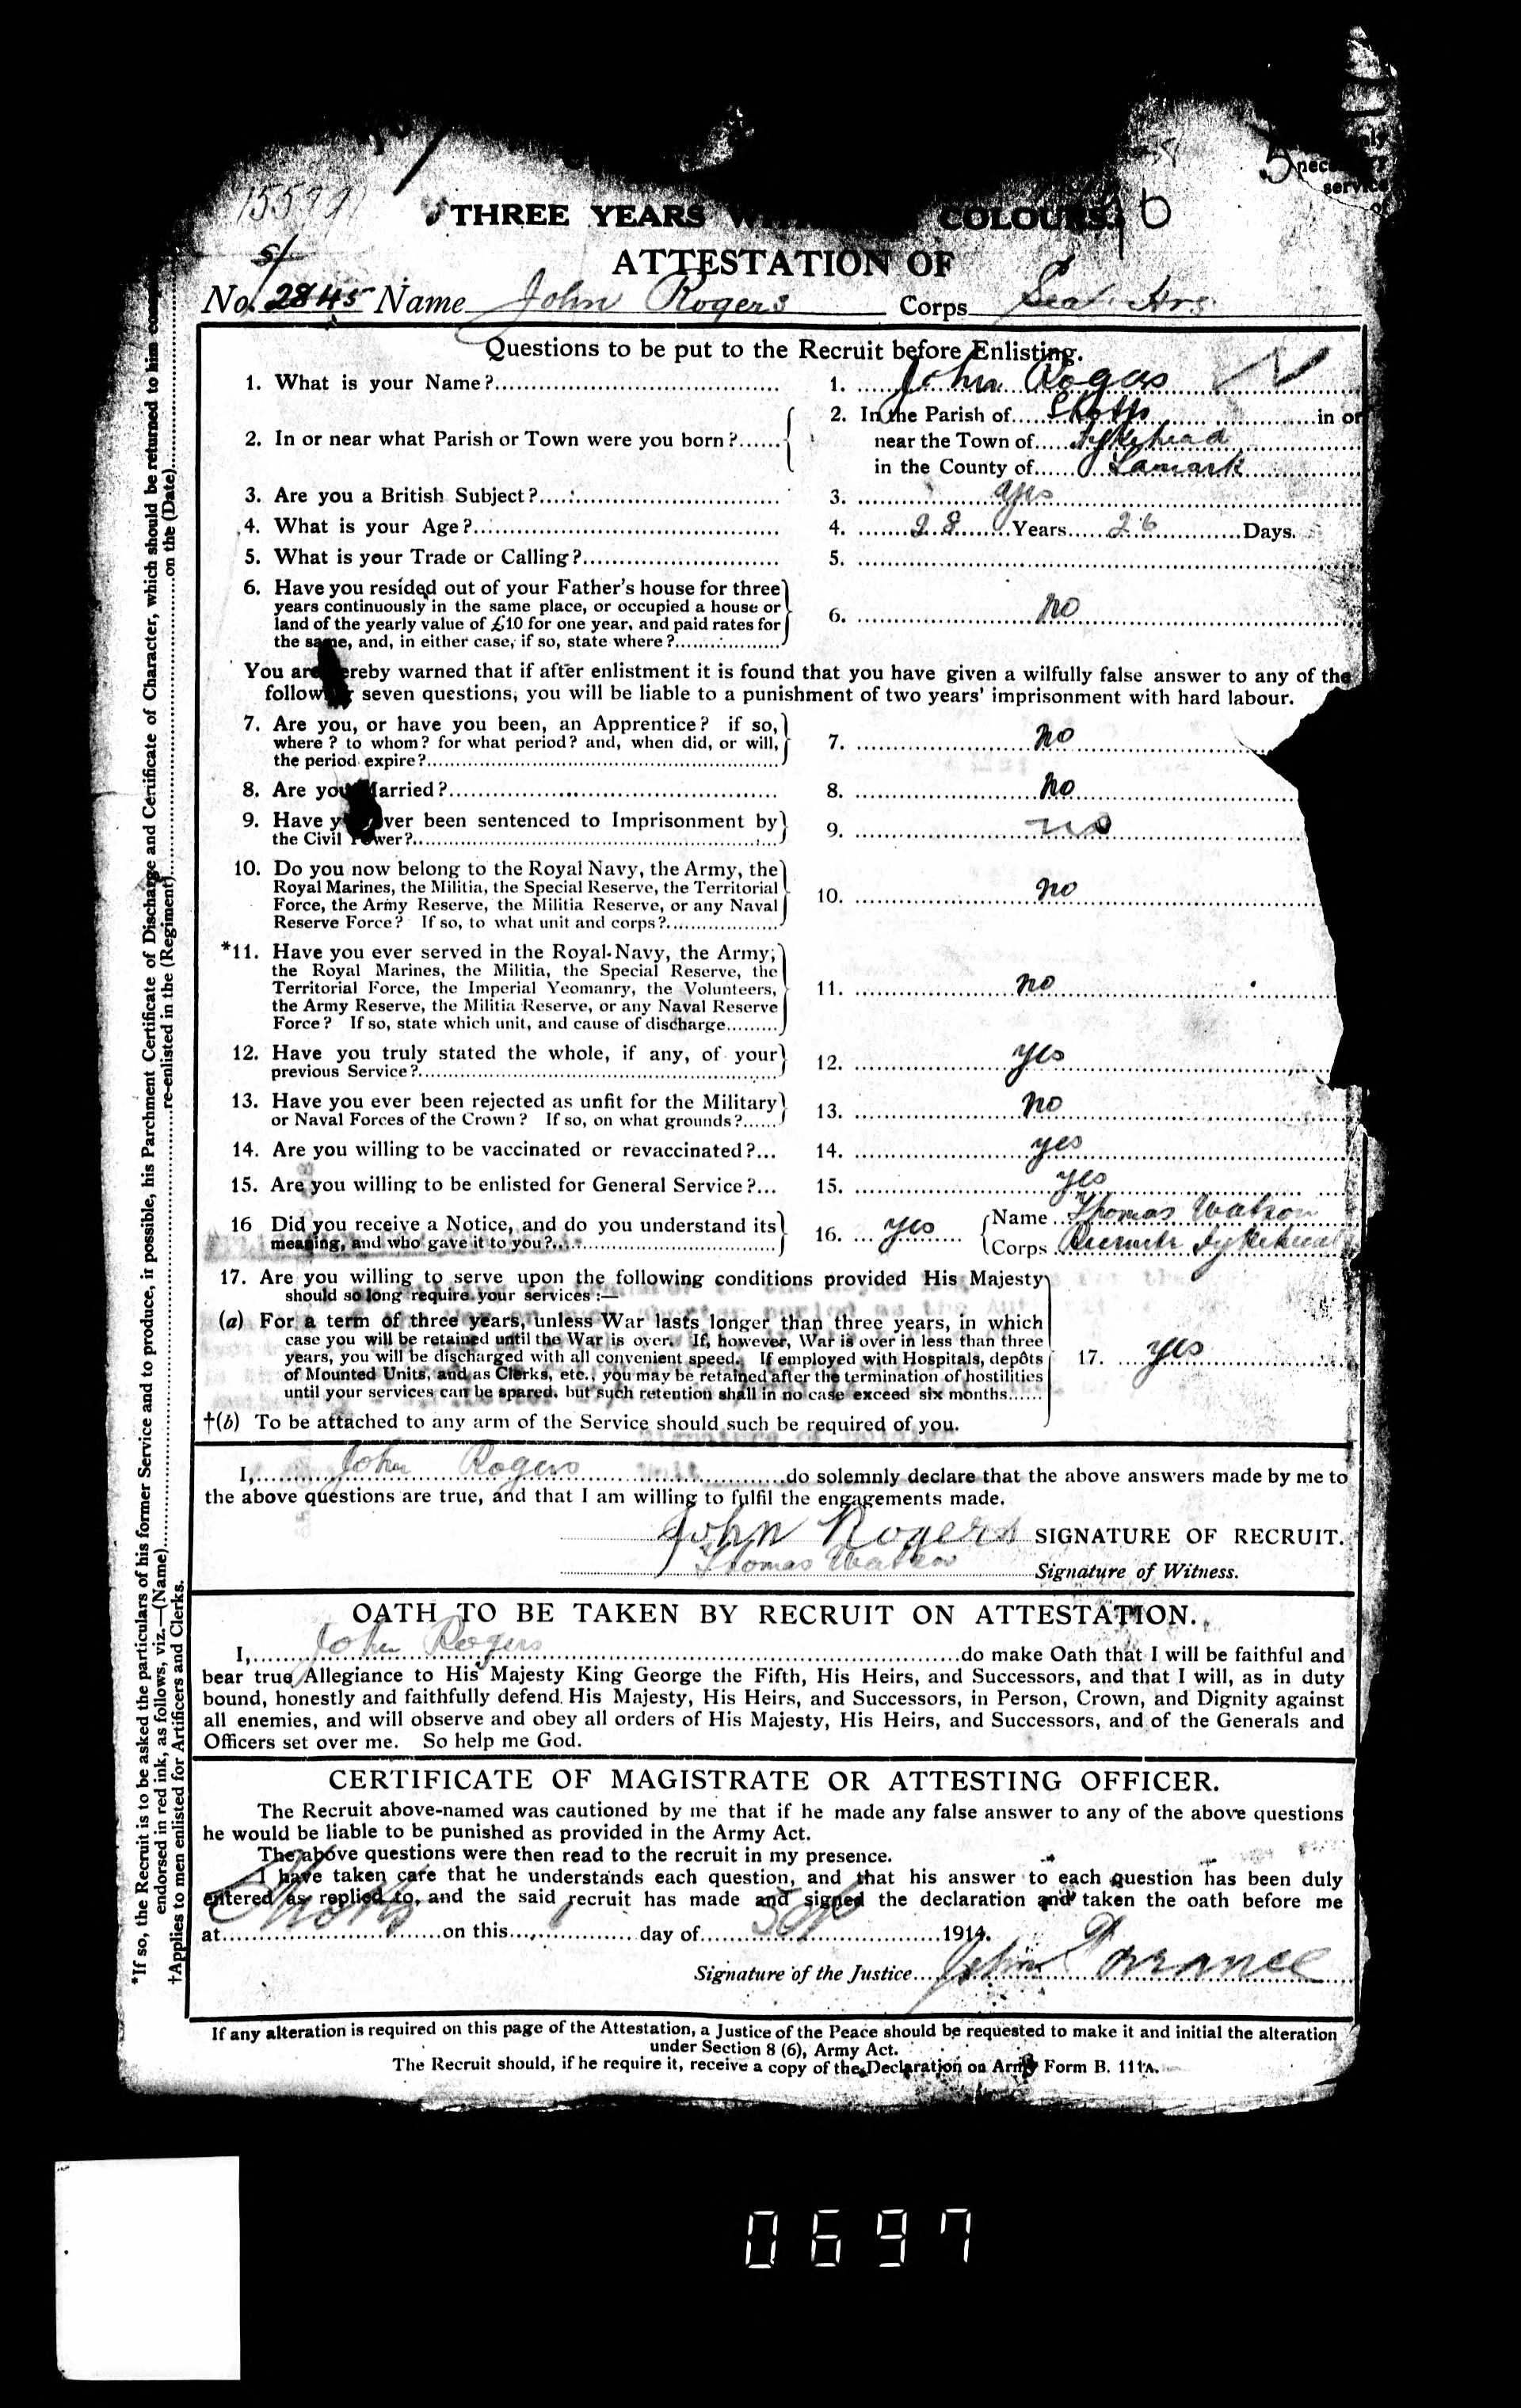 THREE YEARS COLOURS.
ATTESTATION OF
No. S/2845 Name John Rogers Corps Sea. Hrs
Questions to be put to the Recruit before Enlisting.
1. What is your Name? 1. John Rogers
2. In or near what Parish or Town were you born? 2. In the Parish of Shotts in or
near the Town of Dykehead
in the County of Lanark
3. Are you a British Subject? 3. yes
4. What is your Age? 4. 28 Years 26 Days.
5. What is your Trade or Calling? 5.
6. Have you resided out of your Father's house for three
years continuously in the same place, or occupied a house or
land of the yearly value of £10 for one year, and paid rates for
the same, and, in either case, if so, state where? 6. no
You are hereby warned that if after enlistment it is found that you have given a wilfully false answer to any of the
following seven questions, you will be liable to a punishment of two years' imprisonment with hard labour.
7. Are you, or have you been, an Apprentice? if so,
where? to whom? for what period? and, when did, or will,
the period expire? 7. no
8. Are you Married? 8. no
9. Have you ever been sentenced to Imprisonment by
the Civil Power? 9. no
10. Do you now belong to the Royal Navy, the Army, the
Royal Marines, the Militia, the Special Reserve, the Territorial
Force, the Army Reserve, the Militia Reserve, or any Naval
Reserve Force? If so, to what unit and corps? 10. no
*11. Have you ever served in the Royal Navy, the Army,
the Royal Marines, the Militia, the Special Reserve, the
Territorial Force, the Imperial Yeomanry, the Volunteers,
the Army Reserve, the Militia Reserve, or any Naval Reserve
Force? If so, state which unit, and cause of discharge 11. no
12. Have you truly stated the whole, if any, of your
previous Service? 12. yes
13. Have you ever been rejected as unfit for the Military
or Naval Forces of the Crown? If so, on what grounds? 13. no
14. Are you willing to be vaccinated or revaccinated? 14. yes
15. Are you willing to be enlisted for General Service? 15. yes
16 Did you receive a Notice, and do you understand its
meaning, and who gave it to you? 16. yes Name Thomas Watson
Corps Recruiter Dykehead
17. Are you willing to serve upon the following conditions provided His Majesty
should so long require your services :—
(a) For a term of three years, unless War lasts longer than three years, in which
case you will be retained until the War is over. If, however, War is over in less than three
years, you will be discharged with all convenient speed. If employed with Hospitals, depôts
of Mounted Units, and as Clerks, etc., you may be retained after the termination of hostilities
until your services can be spared, but such retention shall in no case exceed six months 17. yes
†(b) To be attached to any arm of the Service should such be required of you.
I, John Rogers do solemnly declare that the above answers made by me to
the above questions are true, and that I am willing to fulfil the engagements made.
John Rogers SIGNATURE OF RECRUIT.
Thomas Watson Signature of Witness.
OATH TO BE TAKEN BY RECRUIT ON ATTESTATION.
I, John Rogers do make Oath that I will be faithful and
bear true Allegiance to His Majesty King George the Fifth, His Heirs, and Successors, and that I will, as in duty
bound, honestly and faithfully defend His Majesty, His Heirs, and Successors, in Person, Crown, and Dignity against
all enemies, and will observe and obey all orders of His Majesty, His Heirs, and Successors, and of the Generals and
Officers set over me. So help me God.
CERTIFICATE OF MAGISTRATE OR ATTESTING OFFICER.
The Recruit above-named was cautioned by me that if he made any false answer to any of the above questions
he would be liable to be punished as provided in the Army Act.
The above questions were then read to the recruit in my presence.
I have taken care that he understands each question, and that his answer to each question has been duly
entered as replied to, and the said recruit has made and signed the declaration and taken the oath before me
at Shotts on this day of Sep 1914.
Signature of the Justice John Torrance
If any alteration is required on this page of the Attestation, a Justice of the Peace should be requested to make it and initial the alteration
under Section 8 (6), Army Act.
The Recruit should, if he require it, receive a copy of the Declaration on Army Form B. 111A.
*If so, the Recruit is to be asked the particulars of his former Service and to produce, if possible, his Parchment Certificate of Discharge and Certificate of Character, which should be returned to him
endorsed in red ink, as follows, viz.—(Name) re-enlisted in the (Regiment) on the (Date)
†Applies to men enlisted for Artificers and Clerks.
0697